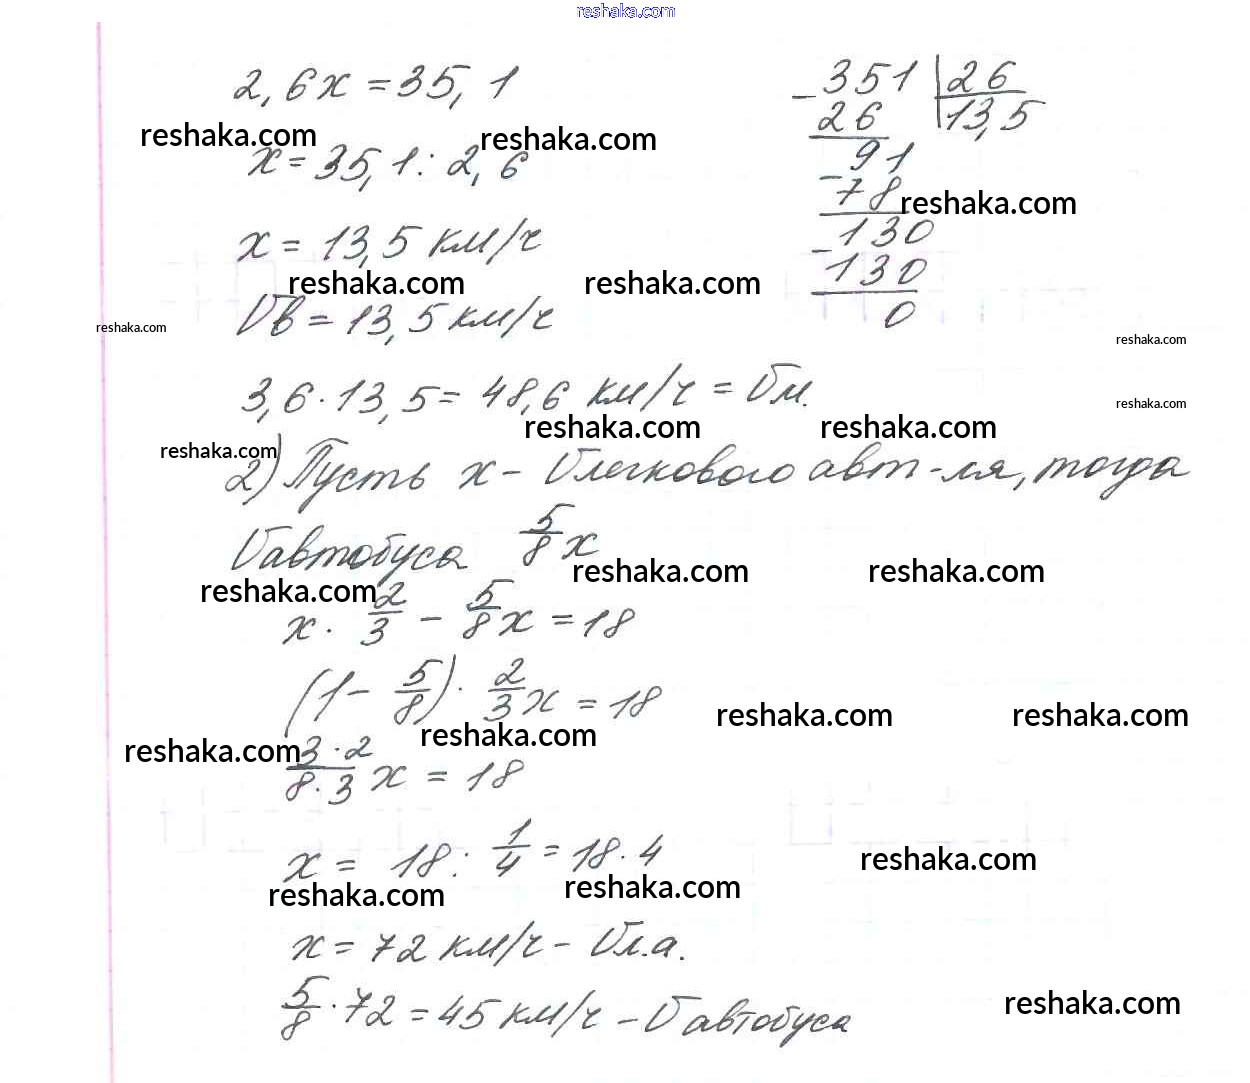 reshaka.com
2,6x = 35,1
351 | 26
- 26 | 13,5
reshaka.com reshaka.com
x = 35,1 : 2,6
91
- 78
reshaka.com
x = 13,5 км/ч
130
- 130
reshaka.com reshaka.com
Vв = 13,5 км/ч
0
reshaka.com
reshaka.com
3,6 · 13,5 = 48,6 км/ч = Vм.
reshaka.com
reshaka.com reshaka.com
reshaka.com
2) Пусть x - Vлегкового авт-ля, тогда
Vавтобуса 5/8 x
reshaka.com reshaka.com
reshaka.com
x · 2/3 - 5/8 x = 18
(1 - 5/8) · 2/3 x = 18
reshaka.com reshaka.com
reshaka.com reshaka.com
3·2/8·3 x = 18
x = 18 : 1/4 = 18 · 4
reshaka.com
reshaka.com reshaka.com
x = 72 км/ч - Vл.а.
5/8 · 72 = 45 км/ч - Vавтобуса
reshaka.com